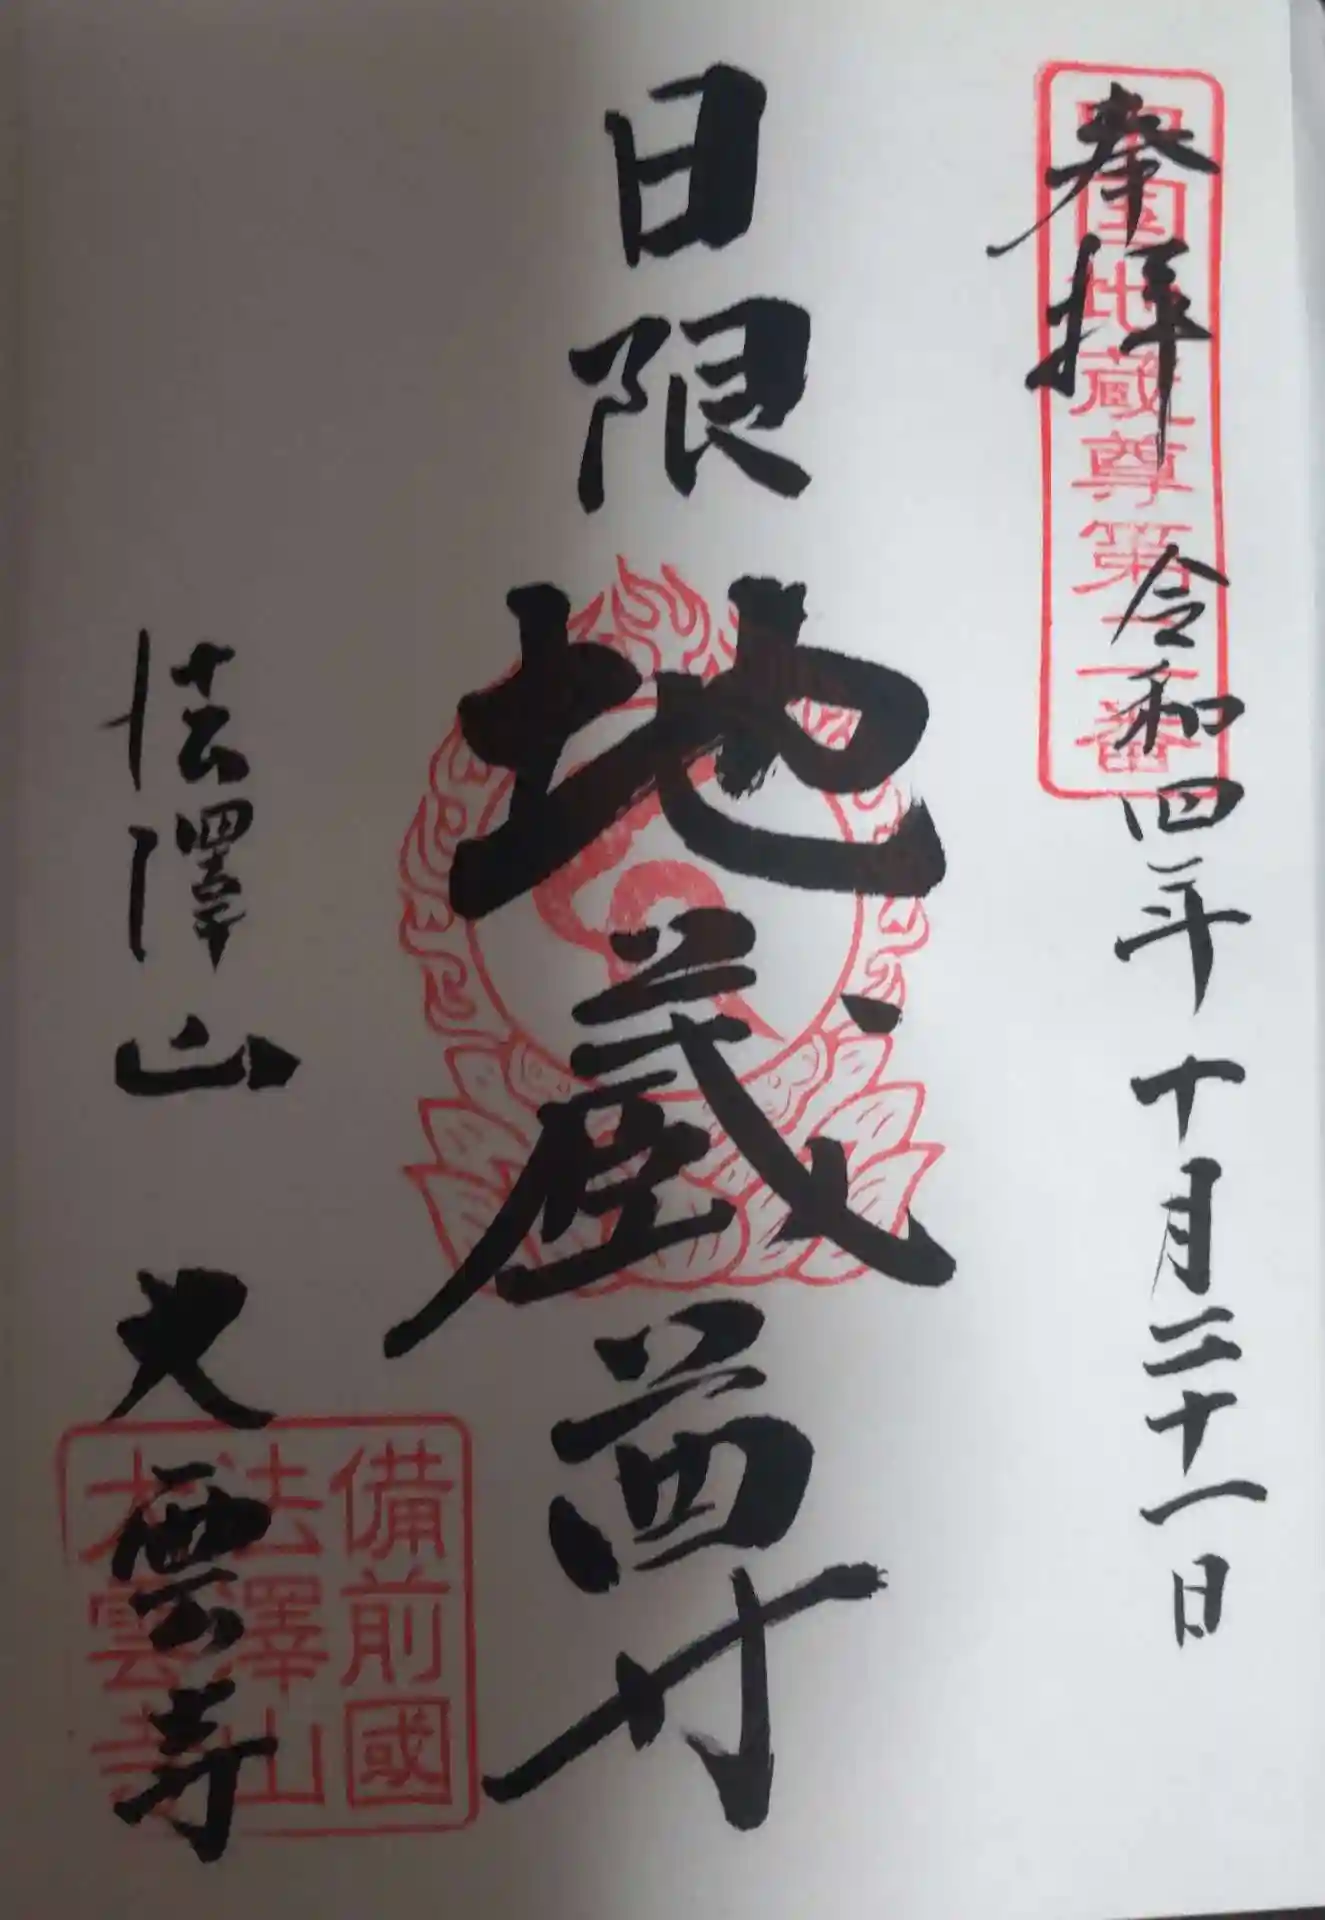 奉拝
令和四年十月二十一日
国地蔵尊第二番
日限地蔵尊
法澤山
大雲寺
備前國
法澤山
大雲寺